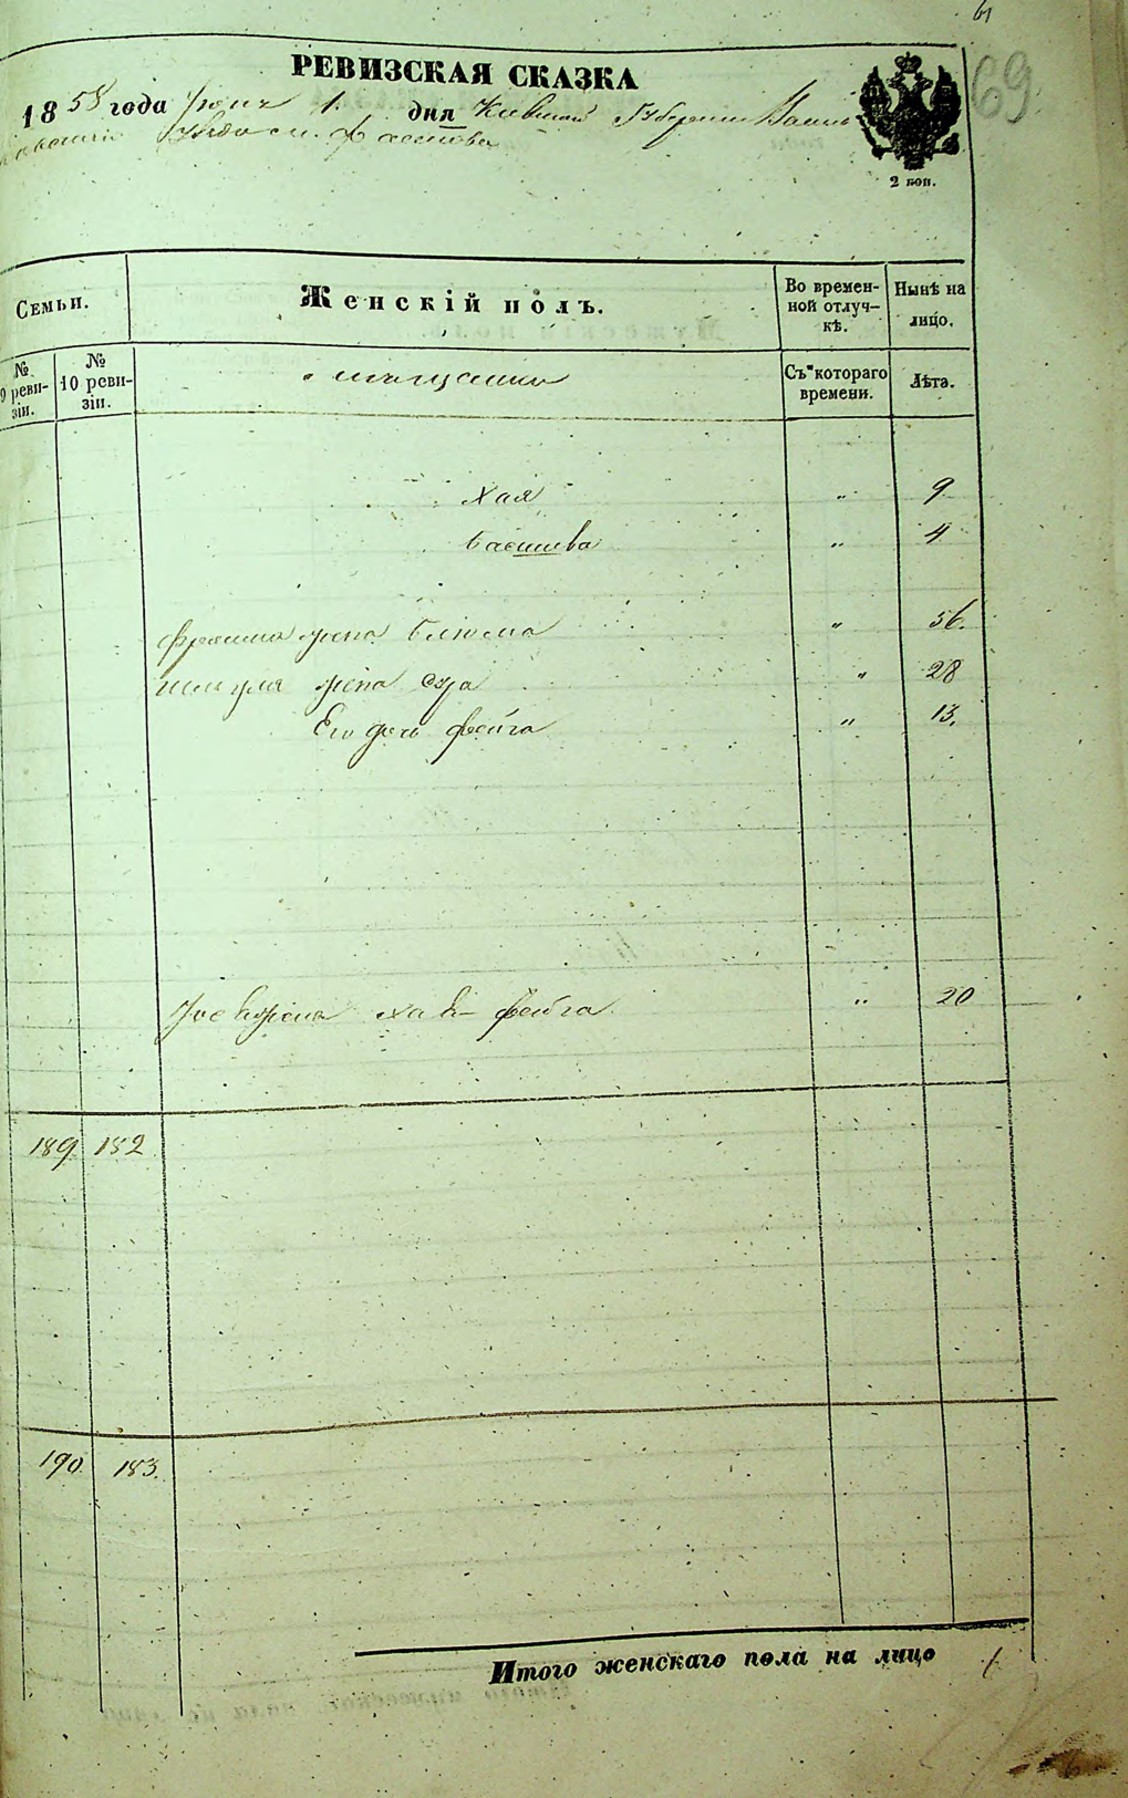 61
69
РЕВИЗСКАЯ СКАЗКА
1858 года Июня 1. дня Киевской Губернии
Уезда м. Фастова
2 коп.
Семьи.
Женскій полъ.
Во времен-
ной отлуч-
кѣ.
Нынѣ на
лицо.
№
9 реви-
зіи.
№
10 реви-
зіи.
Съ котораго
времени.
Лѣта.
Хая " 9
Басшева " 4
жена Блюма " 56.
жена Сура " 28
Его дочь Фейга " 13.
жена Хая-Фейга " 20
189 182
190 183.
Итого женскаго пола на лицо
6